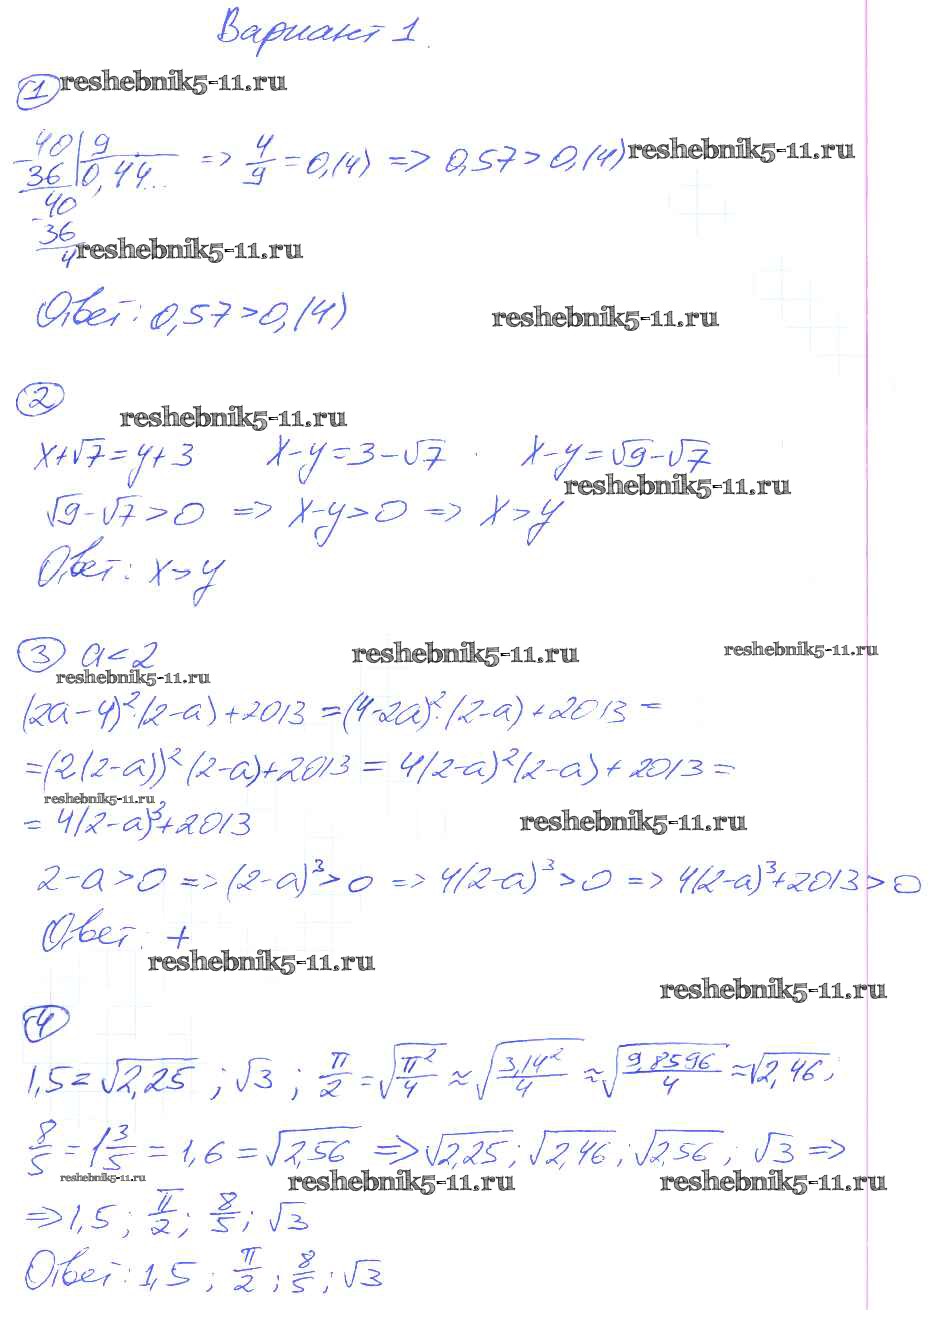 Вариант 1.
1 reshebnik5-11.ru
40 | 9 => 4/9 = 0,(4) => 0,57 > 0,(4) reshebnik5-11.ru
36 0,44...
40
36
4 reshebnik5-11.ru
Ответ: 0,57 > 0,(4) reshebnik5-11.ru
2
reshebnik5-11.ru
x+√7 = y+3 x-y = 3-√7 x-y = √9-√7
reshebnik5-11.ru
√9-√7 > 0 => x-y > 0 => x > y
Ответ: x > y
3 a < 2 reshebnik5-11.ru reshebnik5-11.ru
reshebnik5-11.ru
(2a-4)²·(2-a)+2013 = (4-2a)²·(2-a)+2013 =
= (2(2-a))²(2-a)+2013 = 4(2-a)²(2-a)+2013 =
reshebnik5-11.ru
= 4(2-a)³+2013 reshebnik5-11.ru
2-a > 0 => (2-a)³ > 0 => 4(2-a)³ > 0 => 4(2-a)³+2013 > 0
Ответ: +
reshebnik5-11.ru
reshebnik5-11.ru
4
1,5 = √2,25 ; √3 ; π/2 = √(π²/4) ≈ √(3,14²/4) ≈ √(9,8596/4) ≈ √2,46;
8/5 = 1 3/5 = 1,6 = √2,56 => √2,25; √2,46; √2,56; √3 =>
reshebnik5-11.ru reshebnik5-11.ru reshebnik5-11.ru
=> 1,5 ; π/2 ; 8/5 ; √3
Ответ: 1,5 ; π/2 ; 8/5 ; √3